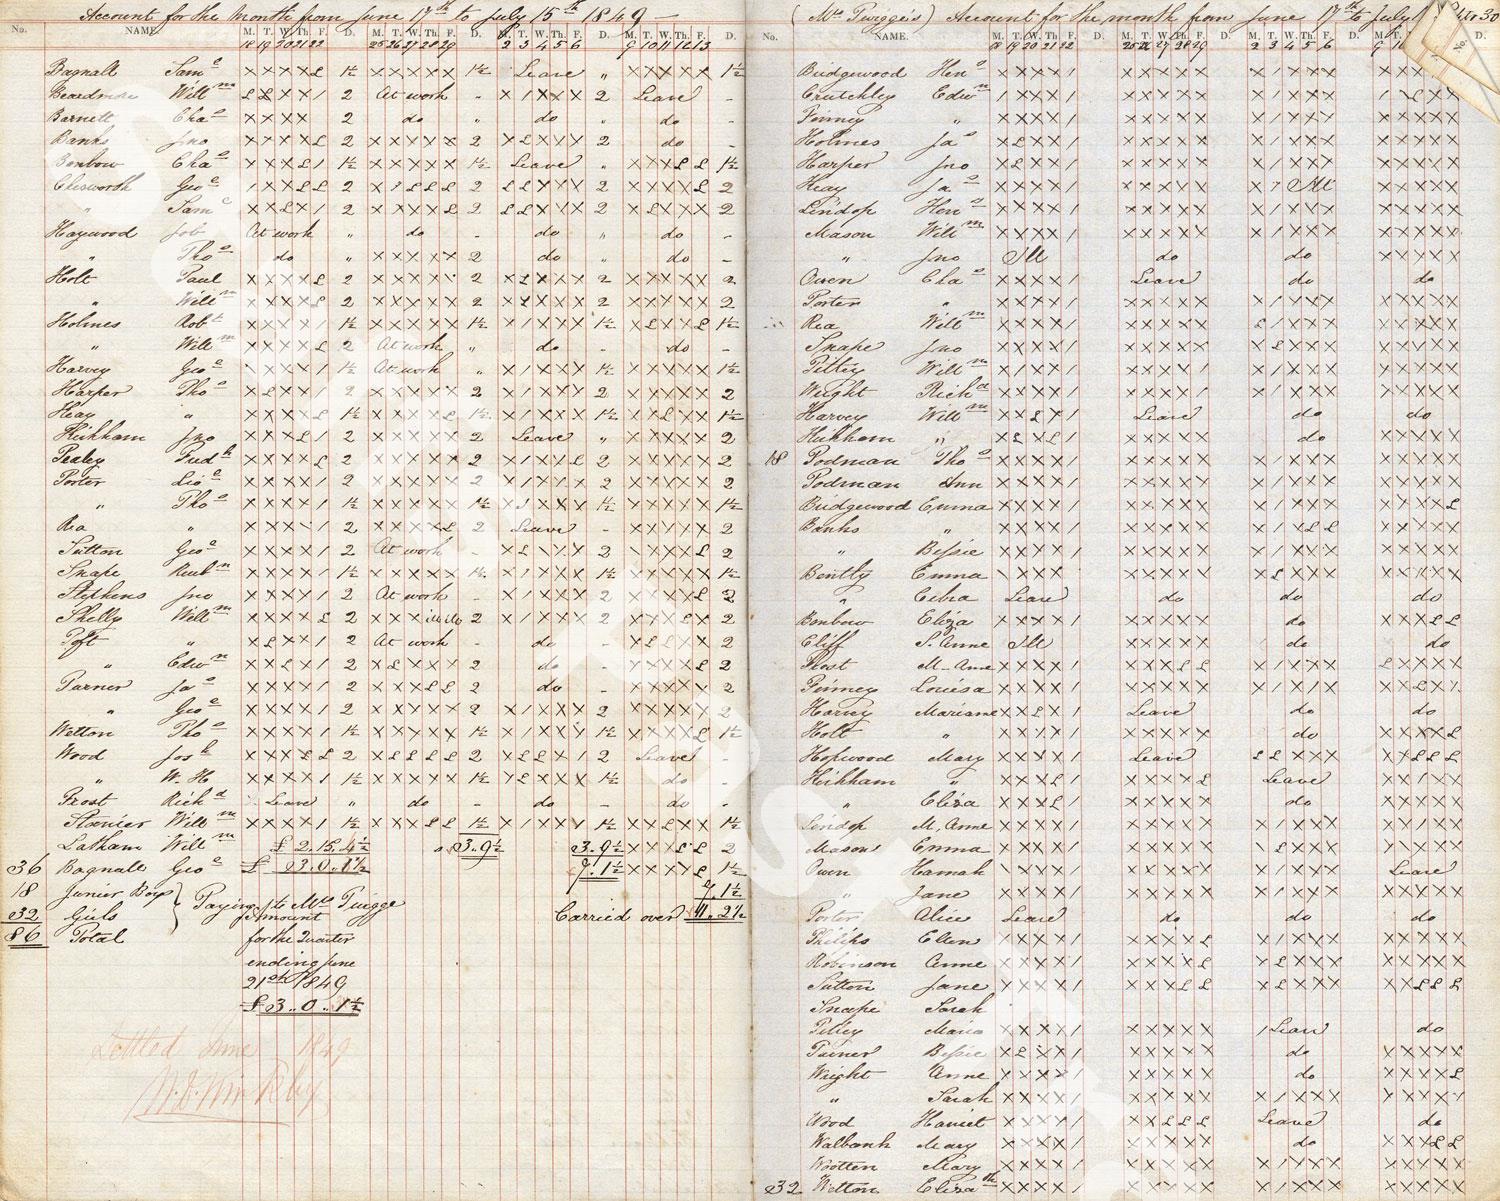 Account for the Month from June 17th to July 15th 1849
No. NAME. M. T. W. Th. F. D. M. T. W. Th. F. D. M. T. W. Th. F. D. M. T. W. Th. F. D.
18 19 20 21 22 25 26 27 28 29 2 3 4 5 6 9 10 11 12 13
Bagnall Saml x x x x L 1½ x x x x x 1½ Leave " x x x x x 1½
Boardman Willm L L x x / 2 At work - x / x x x 2 Leave -
Barnett Chas x x x x 2 do " do " do -
Banks Jno x x x x L 2 x x x x x 2 x L x x x 2 do -
Benbow Chas x x x L / 1½ x x x x x 1½ Leave " x x x L L 1½
Chesworth Geoe / x x L L 2 x / L L L 2 L L x x x 2 x x x x L 2
" Saml x x L x / 2 x x x x L 2 L L x x x 2 x L x x x 2
Haywood Job At work " do - do " do -
" Thos do " x x x x x 2 do " do -
Holt Paul x x x x L 2 x x x x x 2 x L x x x 2 x x x x x 2
" Willm x x x x L 2 x x x x x 2 x L x x x 2 x x x x x 2
Holmes Robt x x x x / 1½ x x x x x 1½ x / x x x 1½ x L x x L 1½
" Willm x x x x L 2 At work " do - do -
Harvey Geoe x x x x / 1½ At work " x / x x x 1½ x x x x x 1½
Harper Thos x L x x / 2 x x x x x 2 x / x x x 2 x x x x x 2
Heay " x x x x L 1½ x x x x L 1½ x / x x x 1½ x x L x x 1½
Hickham Jno x x x L / 2 x x x x x 2 Leave " x x x x x 2
Fredk x x x x L 2 x x x x x 2 x / x x L 2 x x x x x 2
Porter x x x x / 2 x x x x x 2 x / x x x 2 x x x x x 2
" Thos x x x x / 1½ x x x x x 1½ x x x x 1½ x x x x x 1½
Rea " x x x x / 2 x x x x L 2 Leave - x x x x x 2
Sutton Geoe x x x x / 2 At work - x L x x x 2 x x x x L 2
Snape Reubn x x x x / 1½ x x x x x 1½ x / x x x 1½ x x x x x 1½
Stephens Jno x x x x / 2 At work - x / x x x 2 x x x x L 2
Shelly Willm x x x x L 2 x x x 2 x / x x x 2 x x x L x 2
Toft " x L x x / 2 At work - do - x L L x x 2
" Edwn x x L x / 2 x L x x x 2 do - x x x x L 2
Turner Jas x x x x / 2 x x x L L 2 do - x x x x x 2
" Geoe x x x x / 2 x x x x x 2 x / x x x 2 x x x x x 2
Wetton Thos x x x x / 1½ x x x x x 1½ x / x x x 1½ x x x x L 1½
Wood Josh x x x L L 2 x L L L L 2 x L L x / 2 Leave -
" W. H x x x x / 1½ x x x x x 1½ x L x x x 1½ do -
Frost Richd Leave " do - do - do -
Stonier Willm x x x x / 1½ x x x L L 1½ x / x x x 1½ x x L x x 1½
Latham Willm £ 2.15.4½ 3.9½ 3.9½ x x x L L 2
36 Bagnall Geoe £ 3.0.1½ 7.1½ x x x x L 1½
18 Junior Boys } Paying to Mrs Twigge 1½
32 Girls Amount Carried over 11.2½
86 Total for the Quarter
ending June
21st 1849
£3..0..1½
Settled June 1849
(Mrs Twigge's) Account for the month from June 17th to July
No. NAME. M. T. W. Th. F. D. M. T. W. Th. F. D. M. T. W. Th. F. D.
18 19 20 21 22 25 26 27 28 29 2 3 4 5 6 9
Bridgewood Heny x x x x / x x x x x x / x x x x x x x
Crutchley Edwn / x x x x x x x x x x / x x x / x L x x
Finney " x x x x / x x x x x x / x x x x x x x
Holmes Jas x L x x / x x x x x x / x x x x x x x
Harper Jno x L x x / x x x x x x / x x x x x x x
Heay Jas x x x x / x x x x x x / Ill x x x x
Lindop Heny x x x x / x x x x x x / x x x x x x x
Mason Willm x x x x / x x x x x x / x x x x x x x
" Jno Ill do do x x x x
Owen Chas x x x x / Leave do do
Porter " x x x x / x x x x x x / x x x x x x x
Rea Willm x x x x / x x x x x L / x x x x x x x
Snape Jno x x x x / x x x x x x L x x x x x x x
Titley Willm x x x x / x x x x x x / x x x x x x x
Wright Richd x x x x / x x x x x x / x x x x x x x
Harvey Willm x x L x / Leave do do
Hickham " x L x L / x x x x x do x x x x x
18 Podman Thos x x x x / x x x x x x / x x x x x x x x
Podman Ann x x x x / x x x x x x / x x x x x x x x
Bridgewood Emma x x x x / x x x x x x / x x x x x x x L
Banks " x x x x / x x x x x x / x L L x x x x x
" Bessie x x x x / x x x x x x / x x x x x x x x
Bently Emma x x x x x x x x x x L x x x x x x x x
" Leave do do do
Benbow Eliza x x x x / x x x x x do x x x L L
Cliff S. Anne Ill x x x x x do do
Frost M-Anne x x x x / x x x L L x / x x x L x x x x
Finney Louisa x x x x / x x x x x x / x / x x x L x
Harvey Marianne x x L x / Leave do do
Holt " x x x x / x x x x x do x x x x L
Hopwood Mary x x x x / Leave L L x x x x x L L L
Hickham " x x x L / x x x x L Leave x x x x x
" Eliza x x x L / x x x x x do x x x x x
Lindop M, Anne x x x x / x x x x x x / x x x x x x x x
Mason Emma x x x x / x x x x x x L x x x x x x x x
Owen Hannah x x x x / x x x x x x / x x x Leave
" Jane x x x x / x x x x x x / x x x x x x x x
Porter Alice Leave do do do
Philips Ellen x x x x / x x x x L x / x x x x x x x x
Robinson Anne x x x x / x x x x L x L x x x x x x x x
Sutton Jane x x x x / x x x L L x L x x x x x L L L
Snape Sarah
Titley Maria x x x x / x x x x x / Leave do
Turner Bessie x L x x / x x x x x do x x x x x
Wright Anne x x x x / x x x x x do x x x x L
" Sarah x x x x / x x x x x x / x x x x x x x x
Wood Harriet x x x x / x x L L L Leave do
Walbank Mary x x x x / x x x x x do x x x L L
Wootten Mary x x x x / x x x x x x / x x x x x x x x
32 Wetton Elizath x x x x / x x x x x x / x x x x x x x x